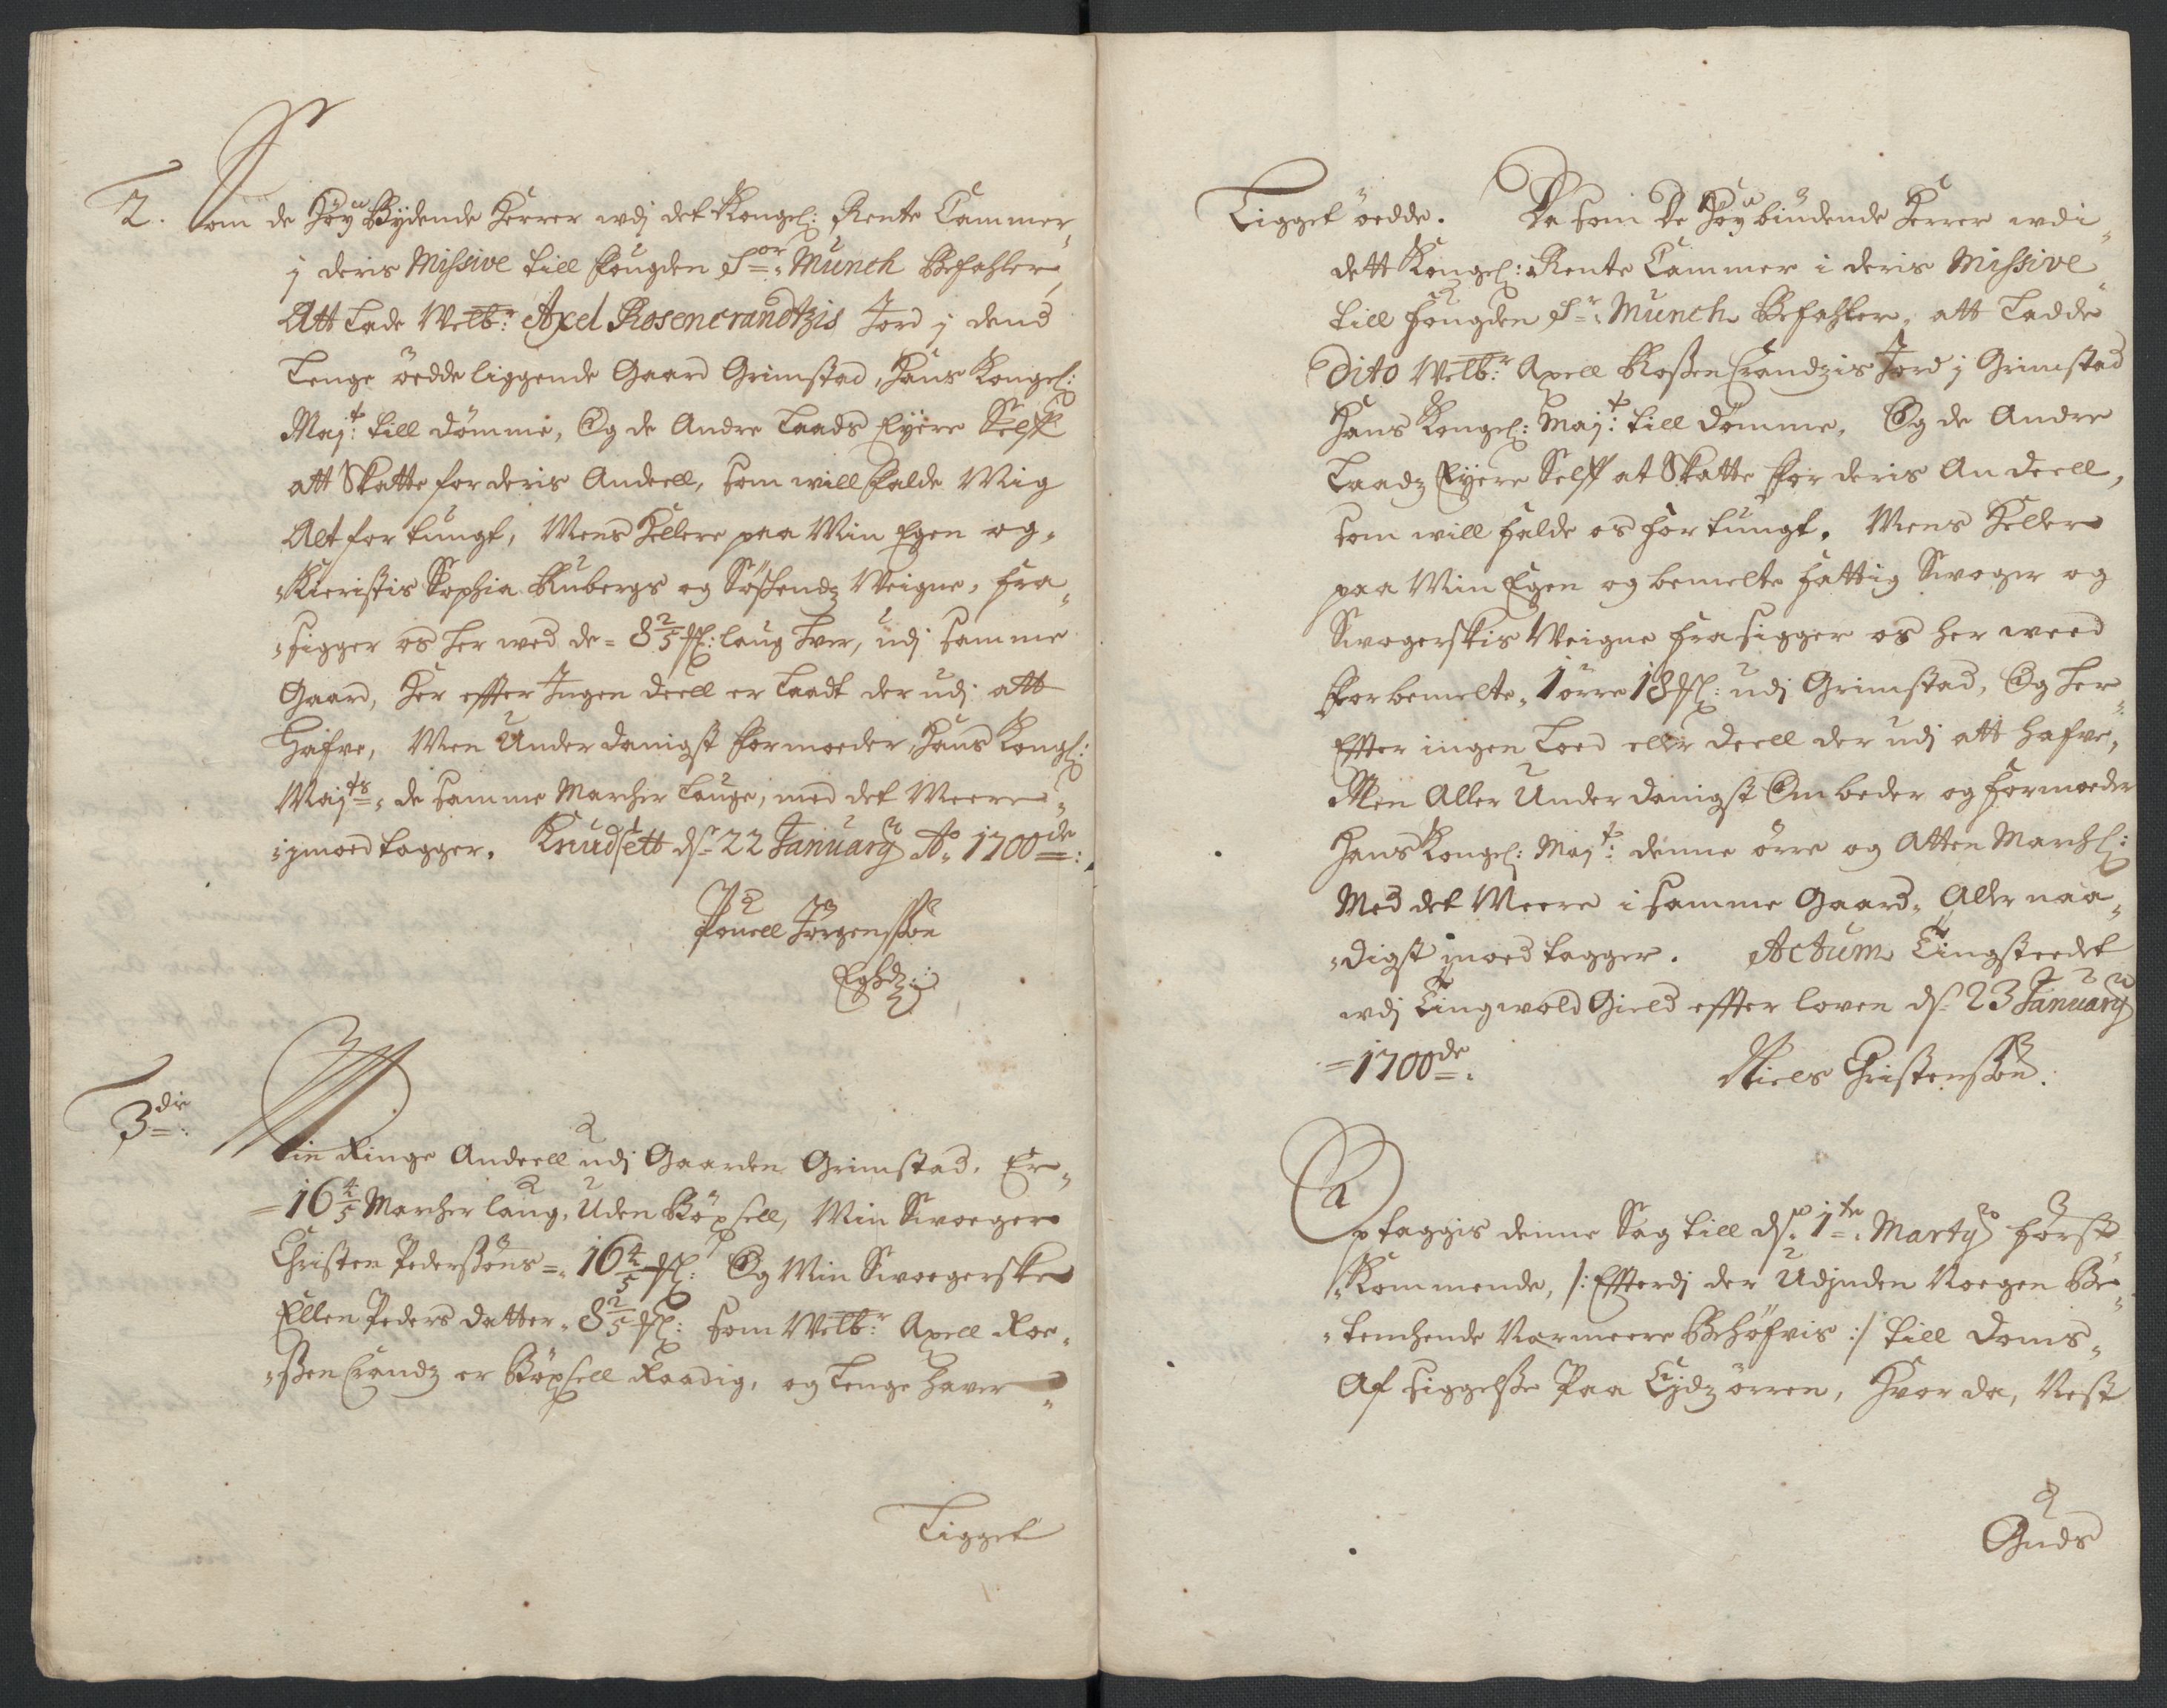 2. Som de Höy Bydende Herrer wdj det Kongel: Rente Cammer
j deris Missive till Fougden Sor: Munch Befahler,
Att Lade Welb:r Axel Rosencrandtzis Jord j dend
Lenge öedde liggende Gaard Grimstad, Hans Kongel:
Maj:t till dömme, Og de Andre Laads Eyere Self
att Skatte for deris Andeell, som will falde Mig
Alt for tungt, Mens Hellere paa Min Egen og
Kieristis Sophia Rubergs og Söskendz Weigne, fra„
„sigger os her wed de = 8 2/5 ʄ: laug Hver, udj samme
Gaard, Her effter Ingen deell er Laadt der udj att
Hafve, Men Under danigst formoeder Hans Kongl:
Maj:ts de samme Marcher Lauge, med det Meere
ijmoed tagger. Knudsett ds: 22 January Ao 1700de:
Pouell Jörgensßön
Eghdz:
3die: Min Ringe Andeell udj Gaarden Grimstad, Er„
=16 4/5 Marcher laug, Uden Böxsell, Min Swoeger
Christen Pederßöns =„ 16 4/5 ʄ: Og Min Swoegerske
Ellen Peders datter„ 8 2/5 ʄ: som Welb:r Axell Roe„
„ßen Crandz er Böxsell Raadig, og Lenge Haver
Ligget
Ligget öedde. Da som De Höy biudende Herrer wdi
dett Kongel: Rente Cammer i deris Missive
till Fougden Sr: Munch Befahler, att Ladde
Dito Welb:r Axell Roßen Crandzis Jord j Grimstad
Hans Kongel: Maj:t till Dömme, Og de Andre
Laadz Eyere Self at Skatte for deris An deell,
som will falde os for tungt. Mens Heller
paa Min Egen og bemelte fattig Swoger og
Swogerskis Weigne frasigger os her weed
forbemelte„ 1 örre 18 ʄ: udj Grimstad, Og her
Effter ingen Loed eller deell der udj att hafve,
Men Aller Under danigst Ombeder og formoeder
Hans Kongel: Maj:t: denne örre og Atten Marchl:
Med det Meere i samme Gaard, Aller naa„
„digst jmoed tagger. Actum Tingsteedet
wdj Tingwold Gield effter loven ds: 23 January
=1700de. Niels Christensßön.
Optaggis denne Sag till ds: 1te Marty först
„Kommende, /: Effterdj der Udjnden Noegen Be„
„tenchende Narmeere Behöfvis :/ till doms„
Af siggelße Paa Eydz örren, Hvor da, Nest
Guds